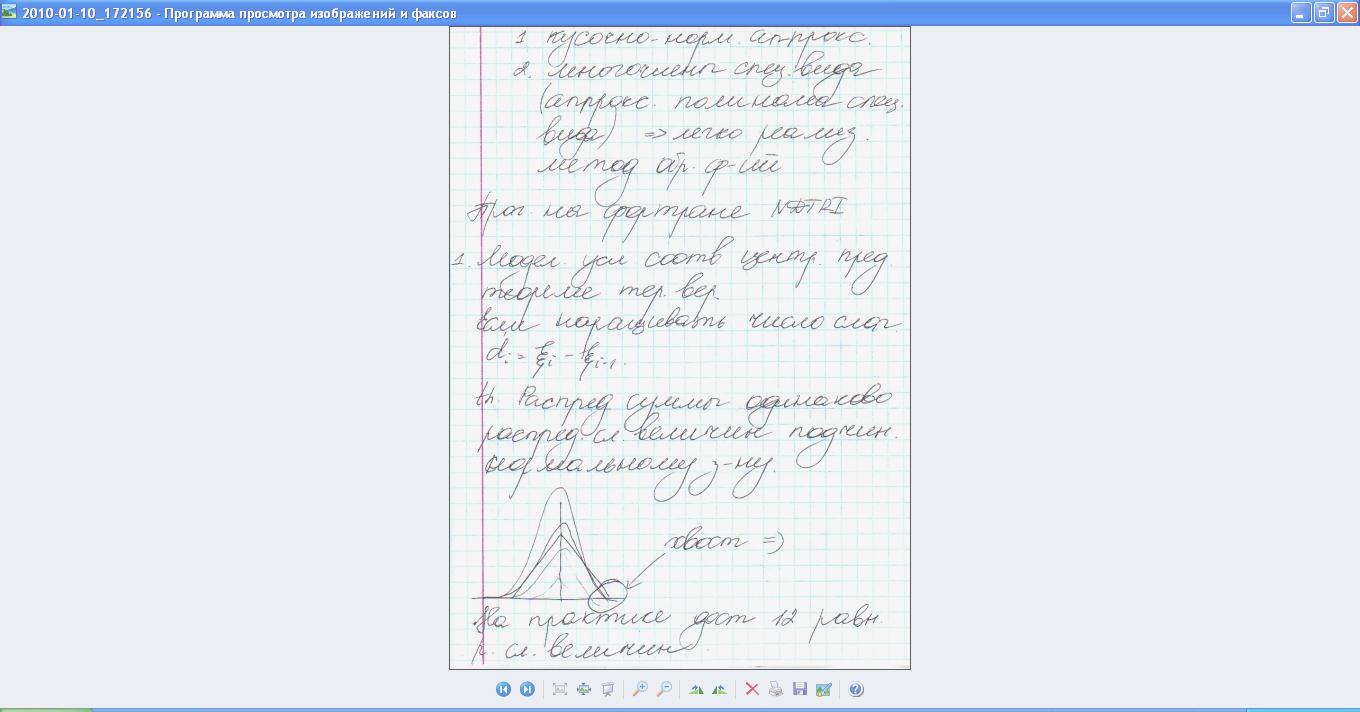 2010-01-10_172156 - Программа просмотра изображений и факсов
1 кусочно-норм. аппрокс.
2. многочлены спец. вида
(аппрокс. полинома спец.
вида) => легко реализ.
метод обр. ф-ий
Прог. на фортране NDTRI
1. Модел. усл соотв центр. пред.
теореме тер. вер.
Если наращивать число слаг.
di = ξi - ξi-1.
th. Распред суммы одинаково
распред. сл. величин подчин.
нормальному з-ну.
хвост =)
На практике дост 12 равн.
р. сл. величин